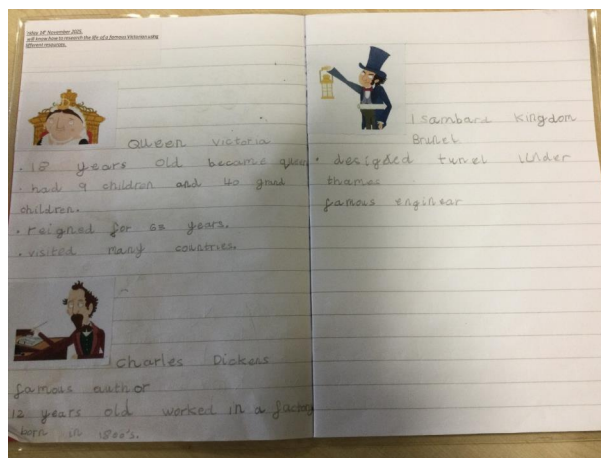 Friday 14th November 2025.
I will know how to research the life of a famous Victorian using
different resources.
Queen Victoria
• 18 years old became queen
• had 9 children and 40 grand
children.
• reigned for years.
• visited many countries.
Charles Dickens
famous author
12 years old worked in a factory
born in 1800's.
Isambard Kingdom
Brunel
• desigded tunel under
thames
famous enginear